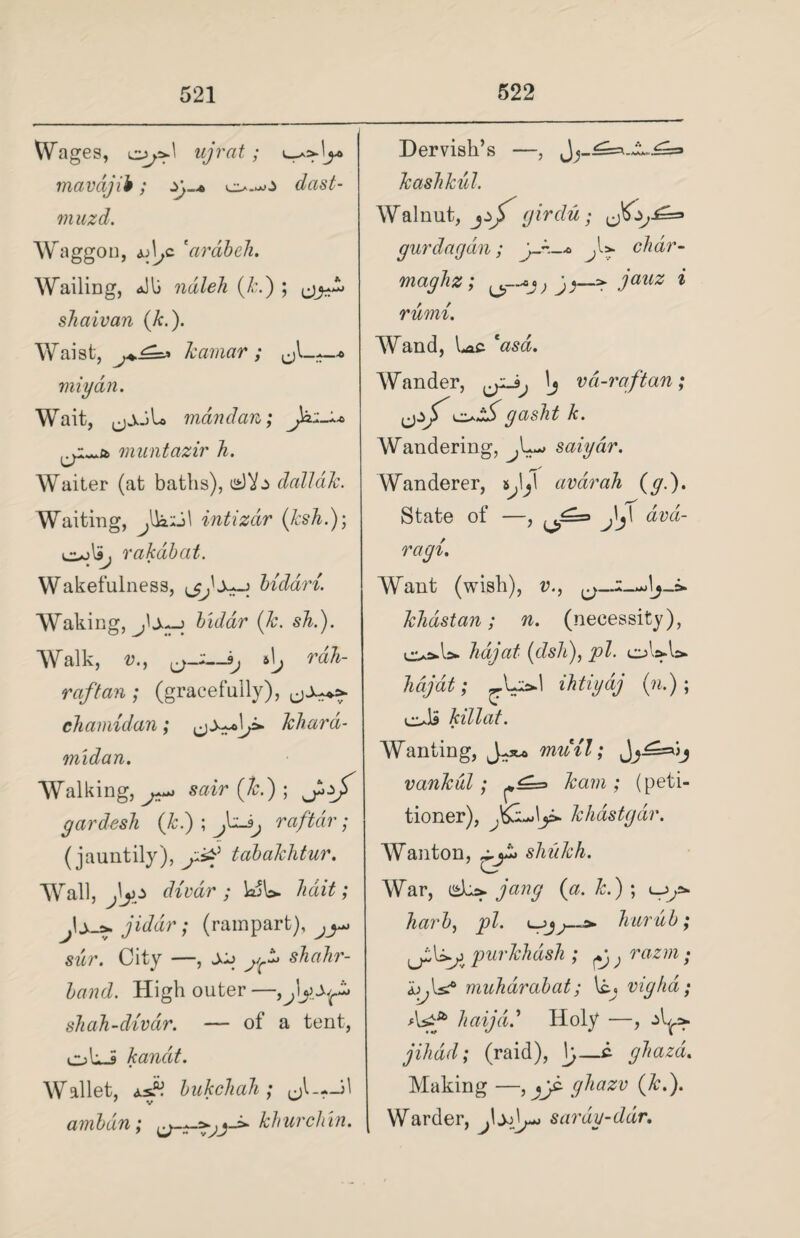 521
Wages, اجرت ujrat ; مواجب
mavájib ; دست مزد dast-
muzd.
Waggon, عرابه 'arábeh.
Wailing, ناله náleh (k.) ; شیون
shaivan (k.).
Waist, کمر kamar ; میان
miyán.
Wait, ماندن mándan ; منتظر
هستن muntazir h.
Waiter (at baths), دلاك dallák.
Waiting, انتظار intizár (ksh.);
رقابت rakábat.
Wakefulness, بیداری bídárí.
Waking, بیدار bídár (k. sh.).
Walk, v., راه رفتن ráh-
raftan ; (gracefully), چمیدن
chamídan ; خرامیدن khará-
mídan.
Walking, سیر sair (k.) ; گردش
gardesh (k.) ; رفتار raftár ;
(jauntily), تبختر tabakhtur.
Wall, دیوار dívár ; حائط háit ;
جدار jidár ; (rampart), سور
súr. City —, شهر بند shahr-
band. High outer —, شهدیوار
shah-dívár. — of a tent,
قنات kanát.
Wallet, بقچه bukchah ; انبان
ambán ; خورجین khurchín.
522
Dervish's —, کشکول
kashkúl.
Walnut, گردو girdú ; گردکان
gurdagán ; چار مغز chár-
maghz ; جوز رومی jauz i
rúmí.
Wand, عصا 'asá.
Wander, وا رفتن vá-raftan ;
گشت کردن gasht k.
Wandering, سیار saiyár.
Wanderer, آواره avárah (g.).
State of —, آوارکی ává-
ragí.
Want (wish), v., خواستن
khástan ; n. (necessity),
حاجت hájat (dsh), pl. حاجات
háját ; احتیاج ihtiyáj (n.) ;
قلت killat.
Wanting, معیل mu'íl ; وانکول
vankúl ; کم kam ; (peti-
tioner), خواستکار khástgár.
Wanton, شوخ shúkh.
War, جنك jang (a. k.) ; حرب
harb, pl. حروب hurúb ;
پرخاش purkhásh ; رزم razm ;
محاربة muhárabat ; وغا vighá ;
هیجاء haijá.' Holy —, جهاد
jihád ; (raid), غزا ghazá.
Making —, غزو ghazv (k.).
Warder, سرایدار saráy-dár.